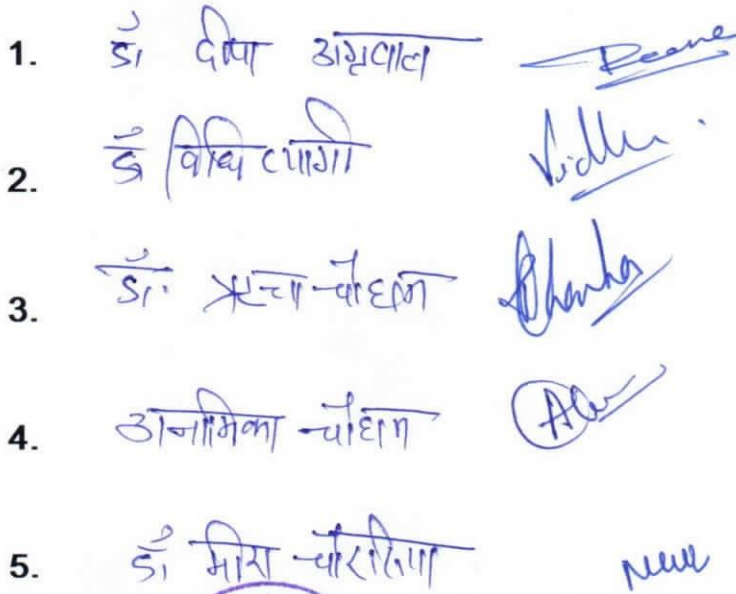 1. डॉ दीपा अग्रवाल
2. डॉ विधि त्यागी Vidhi
3. डॉ. ऋचा चौहान
4. अनामिका चौहान
5. डॉ मीरा चौरसिया